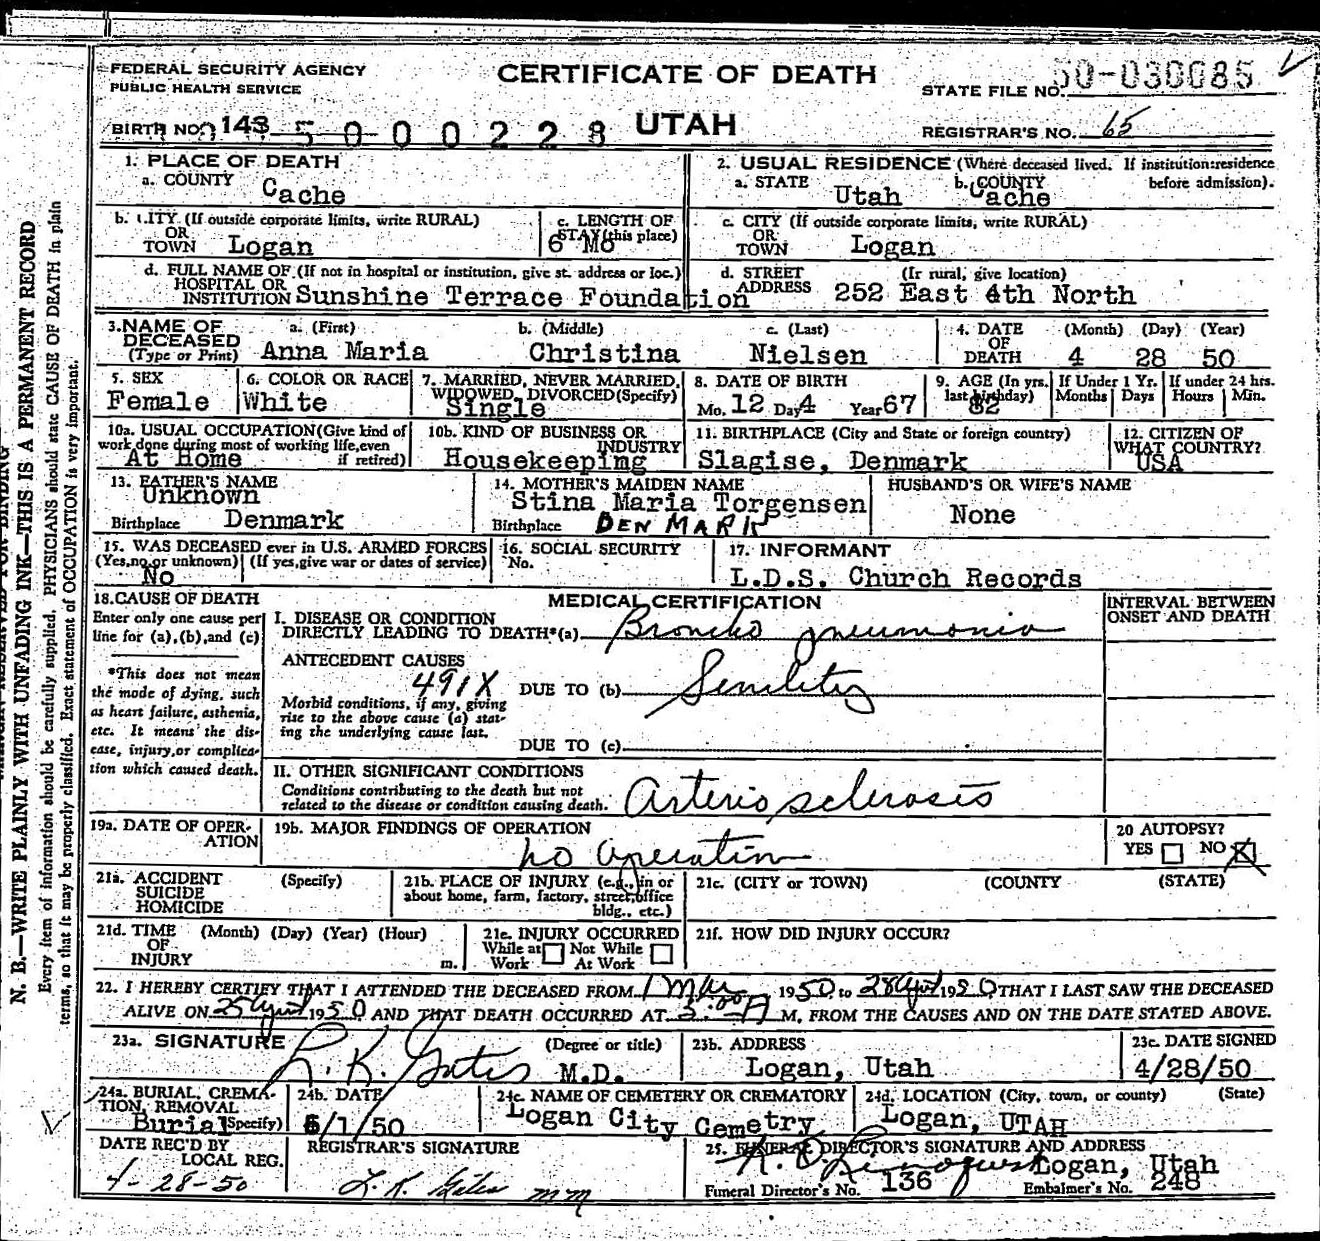 FEDERAL SECURITY AGENCY
PUBLIC HEALTH SERVICE
CERTIFICATE OF DEATH
STATE FILE NO.
BIRTH NO. 143 5 0 0 0 2 2 8 UTAH REGISTRAR'S NO. 65
1. PLACE OF DEATH
a. COUNTY Cache
2. USUAL RESIDENCE (Where deceased lived. If institution:residence before admission).
a. STATE Utah b. COUNTY Cache
b. CITY (If outside corporate limits, write RURAL) OR TOWN Logan
c. LENGTH OF STAY (this place) 6 Mo
c. CITY (If outside corporate limits, write RURAL) OR TOWN Logan
d. FULL NAME OF (If not in hospital or institution, give st. address or loc.) HOSPITAL OR INSTITUTION Sunshine Terrace Foundation
d. STREET ADDRESS (If rural, give location) 252 East 4th North
3. NAME OF DECEASED (Type or Print) a. (First) Anna Maria b. (Middle) Christina c. (Last) Nielsen
4. DATE OF DEATH (Month) (Day) (Year) 4 28 50
5. SEX Female
6. COLOR OR RACE White
7. MARRIED, NEVER MARRIED, WIDOWED, DIVORCED (Specify) Single
8. DATE OF BIRTH Mo. 12 Day 4 Year 67
9. AGE (In yrs. last birthday) 82 If Under 1 Yr. Months Days If under 24 hrs. Hours Min.
10a. USUAL OCCUPATION (Give kind of work done during most of working life, even if retired) At Home
10b. KIND OF BUSINESS OR INDUSTRY Housekeeping
11. BIRTHPLACE (City and State or foreign country) Slagise, Denmark
12. CITIZEN OF WHAT COUNTRY? USA
13. FATHER'S NAME Unknown
Birthplace Denmark
14. MOTHER'S MAIDEN NAME Stina Maria Torgensen
Birthplace DENMARK
HUSBAND'S OR WIFE'S NAME
None
15. WAS DECEASED ever in U.S. ARMED FORCES (Yes, no, or unknown) (If yes, give war or dates of service) No
16. SOCIAL SECURITY No.
17. INFORMANT
L.D.S. Church Records
18. CAUSE OF DEATH
Enter only one cause per line for (a), (b), and (c)
*This does not mean the mode of dying, such as heart failure, asthenia, etc. It means the disease, injury, or complication which caused death.
MEDICAL CERTIFICATION
INTERVAL BETWEEN ONSET AND DEATH
I. DISEASE OR CONDITION DIRECTLY LEADING TO DEATH*(a) Broncho pneumonia
ANTECEDENT CAUSES
491X DUE TO (b) Senility
Morbid conditions, if any, giving rise to the above cause (a) stating the underlying cause last.
DUE TO (c)
II. OTHER SIGNIFICANT CONDITIONS
Conditions contributing to the death but not related to the disease or condition causing death. Arterio sclerosis
19a. DATE OF OPERATION
19b. MAJOR FINDINGS OF OPERATION
no operation
20 AUTOPSY?
YES NO X
21a. ACCIDENT SUICIDE HOMICIDE (Specify)
21b. PLACE OF INJURY (e.g., in or about home, farm, factory, street, office bldg., etc.)
21c. (CITY or TOWN) (COUNTY (STATE)
21d. TIME OF INJURY (Month) (Day) (Year) (Hour) m.
21e. INJURY OCCURRED While at Work Not While At Work
21f. HOW DID INJURY OCCUR?
22. I HEREBY CERTIFY THAT I ATTENDED THE DECEASED FROM 1 Mar 1950, to 28 April 1950, THAT I LAST SAW THE DECEASED
ALIVE ON 25 April 1950 AND THAT DEATH OCCURRED AT 5:00 A M, FROM THE CAUSES AND ON THE DATE STATED ABOVE.
23a. SIGNATURE L. K. Gates (Degree or title) M.D.
23b. ADDRESS
Logan, Utah
23c. DATE SIGNED
4/28/50
24a. BURIAL, CREMATION, REMOVAL (Specify) Burial
24b. DATE
5/1/50
24c. NAME OF CEMETERY OR CREMATORY
Logan City Cemetry
24d. LOCATION (City, town, or county) (State)
Logan, UTAH
DATE REC'D BY LOCAL REG.
4-28-50
REGISTRAR'S SIGNATURE
L. K. Gates mm
25. FUNERAL DIRECTOR'S SIGNATURE AND ADDRESS
Logan, Utah
Funeral Director's No. 136 Embalmer's No. 248
N. B.—WRITE PLAINLY WITH UNFADING INK—THIS IS A PERMANENT RECORD
Every item of information should be carefully supplied. PHYSICIANS should state CAUSE OF DEATH in plain
terms, so that it may be properly classified. Exact statement of OCCUPATION is very important.